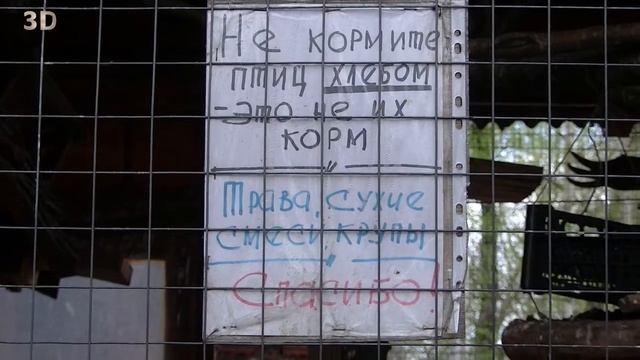 3D
Не кормите
птиц хлебом
- это не их
корм
Трава, сухие
смеси, крупы
Спасибо!